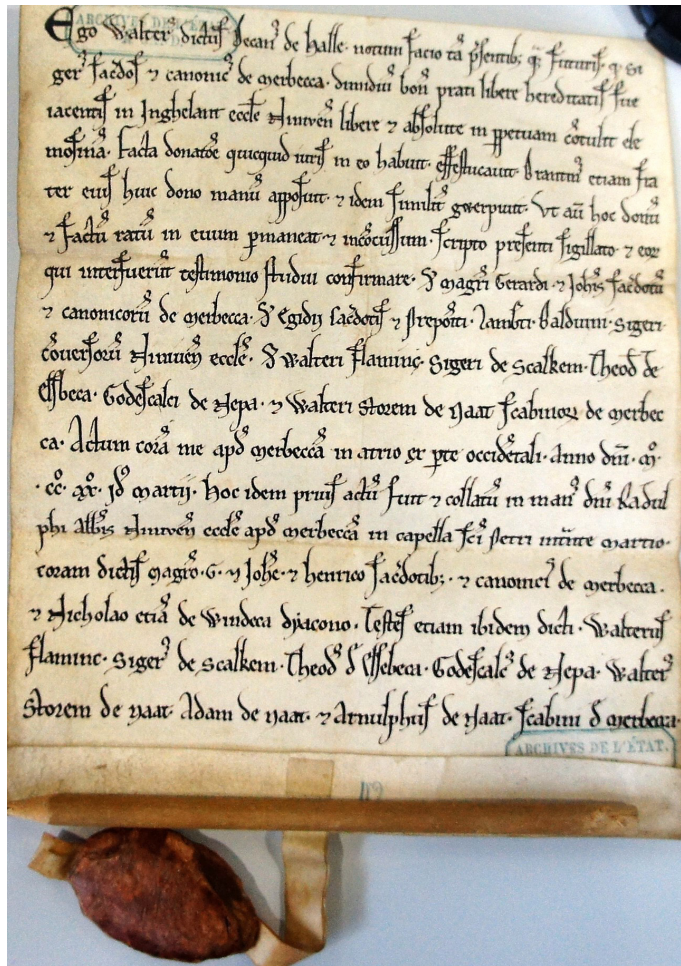 Ego Walterˀ dictiſ Decanˀ de halle. notum facio tā p̄ſentib; q̄ȝ futuriſ. q̄ Si
gerˀ ſac̄doſ ⁊ canonicˀ de merbecca. dimidiū bonˀ prati libere hereditatiſ ſue
iacentiſ in Inghelant eccl̄e Niniuen̄ libere ⁊ abſolute in ꝑpetuam ꝯtulit ele
moſinā. facta donatōe quicquid iuriſ in eo habuit. effeſtucauit. Brantinˀ etiam fra
ter eiuſ huic dono manū appoſuit. ⁊ idem ſimilit̄ guerpiuit. Vt aū hoc donū
⁊ factū ratū in euum ꝑmaneat. ⁊ incōcuſſum. ſcripto preſenti ſigillato ⁊ eoꝝ
qui interfuerūt teſtimonio ſtudui confirmare. S magr̄i Gerardi. ⁊ Joh̄is ſac̄dotū
⁊ canonicorū de merbecca. S Egidij ſac̄dotiſ ⁊ prepōiti. Lamb̄ti. Balduini. Sigeri.
cōuerſorū Niniuen̄ eccl̄e. S Walteri flaminc. Sigeri de Scalkem. Theod̄ de
Eſſbeca. Godeſcalci de Nepa. ⁊ Walteri Storem de Naat ſcabinoꝝ de merbec
ca. Actum corā me apd̄ merbeccā in atrio ex ꝑte occidētali. Anno dn̄i. mͦ.
.ccͦ. xxͦ. Jd̄ martij. Hoc idem priuſ actū fuit ⁊ collatū in manˀ dn̄i Radul
phi Abb̄is Niniuen̄ eccl̄e apd̄ merbeccā in capella ſc̄i petri martio.
coram dictiſ magr̄o. G. ⁊ Joh̄e. ⁊ henrico ſac̄dotib;. ⁊ canoniciſ de merbecca.
⁊ Nicholao etiā de Windeca dyacono. Teſteſ etiam ibidem dicti. Walteruſ
flaminc. Sigerˀ de Scalkem. Theod̄ d̄ Eſſebeca. Godeſcalcˀ de Nepa. Walterˀ
Storem de naat. Adam de naat. ⁊ Arnulphuſ de Naat. ſcabini d̄ merbecca.
ARCHIVES DE L'ÉTAT.